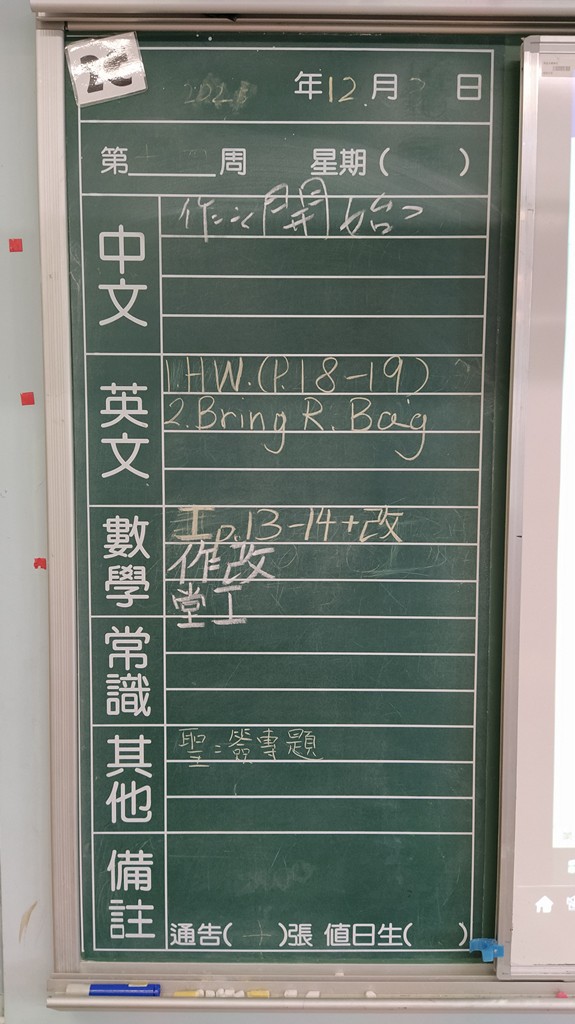 2C
202 年12月 日
第 周 星期( )
中文
作：《開始》
英文
1.HW.(P.18-19)
2.Bring R. Bag
數學
工p.13-14+改
作改
堂工
常識
其他
聖：簽專題
備註
通告( )張 值日生( )